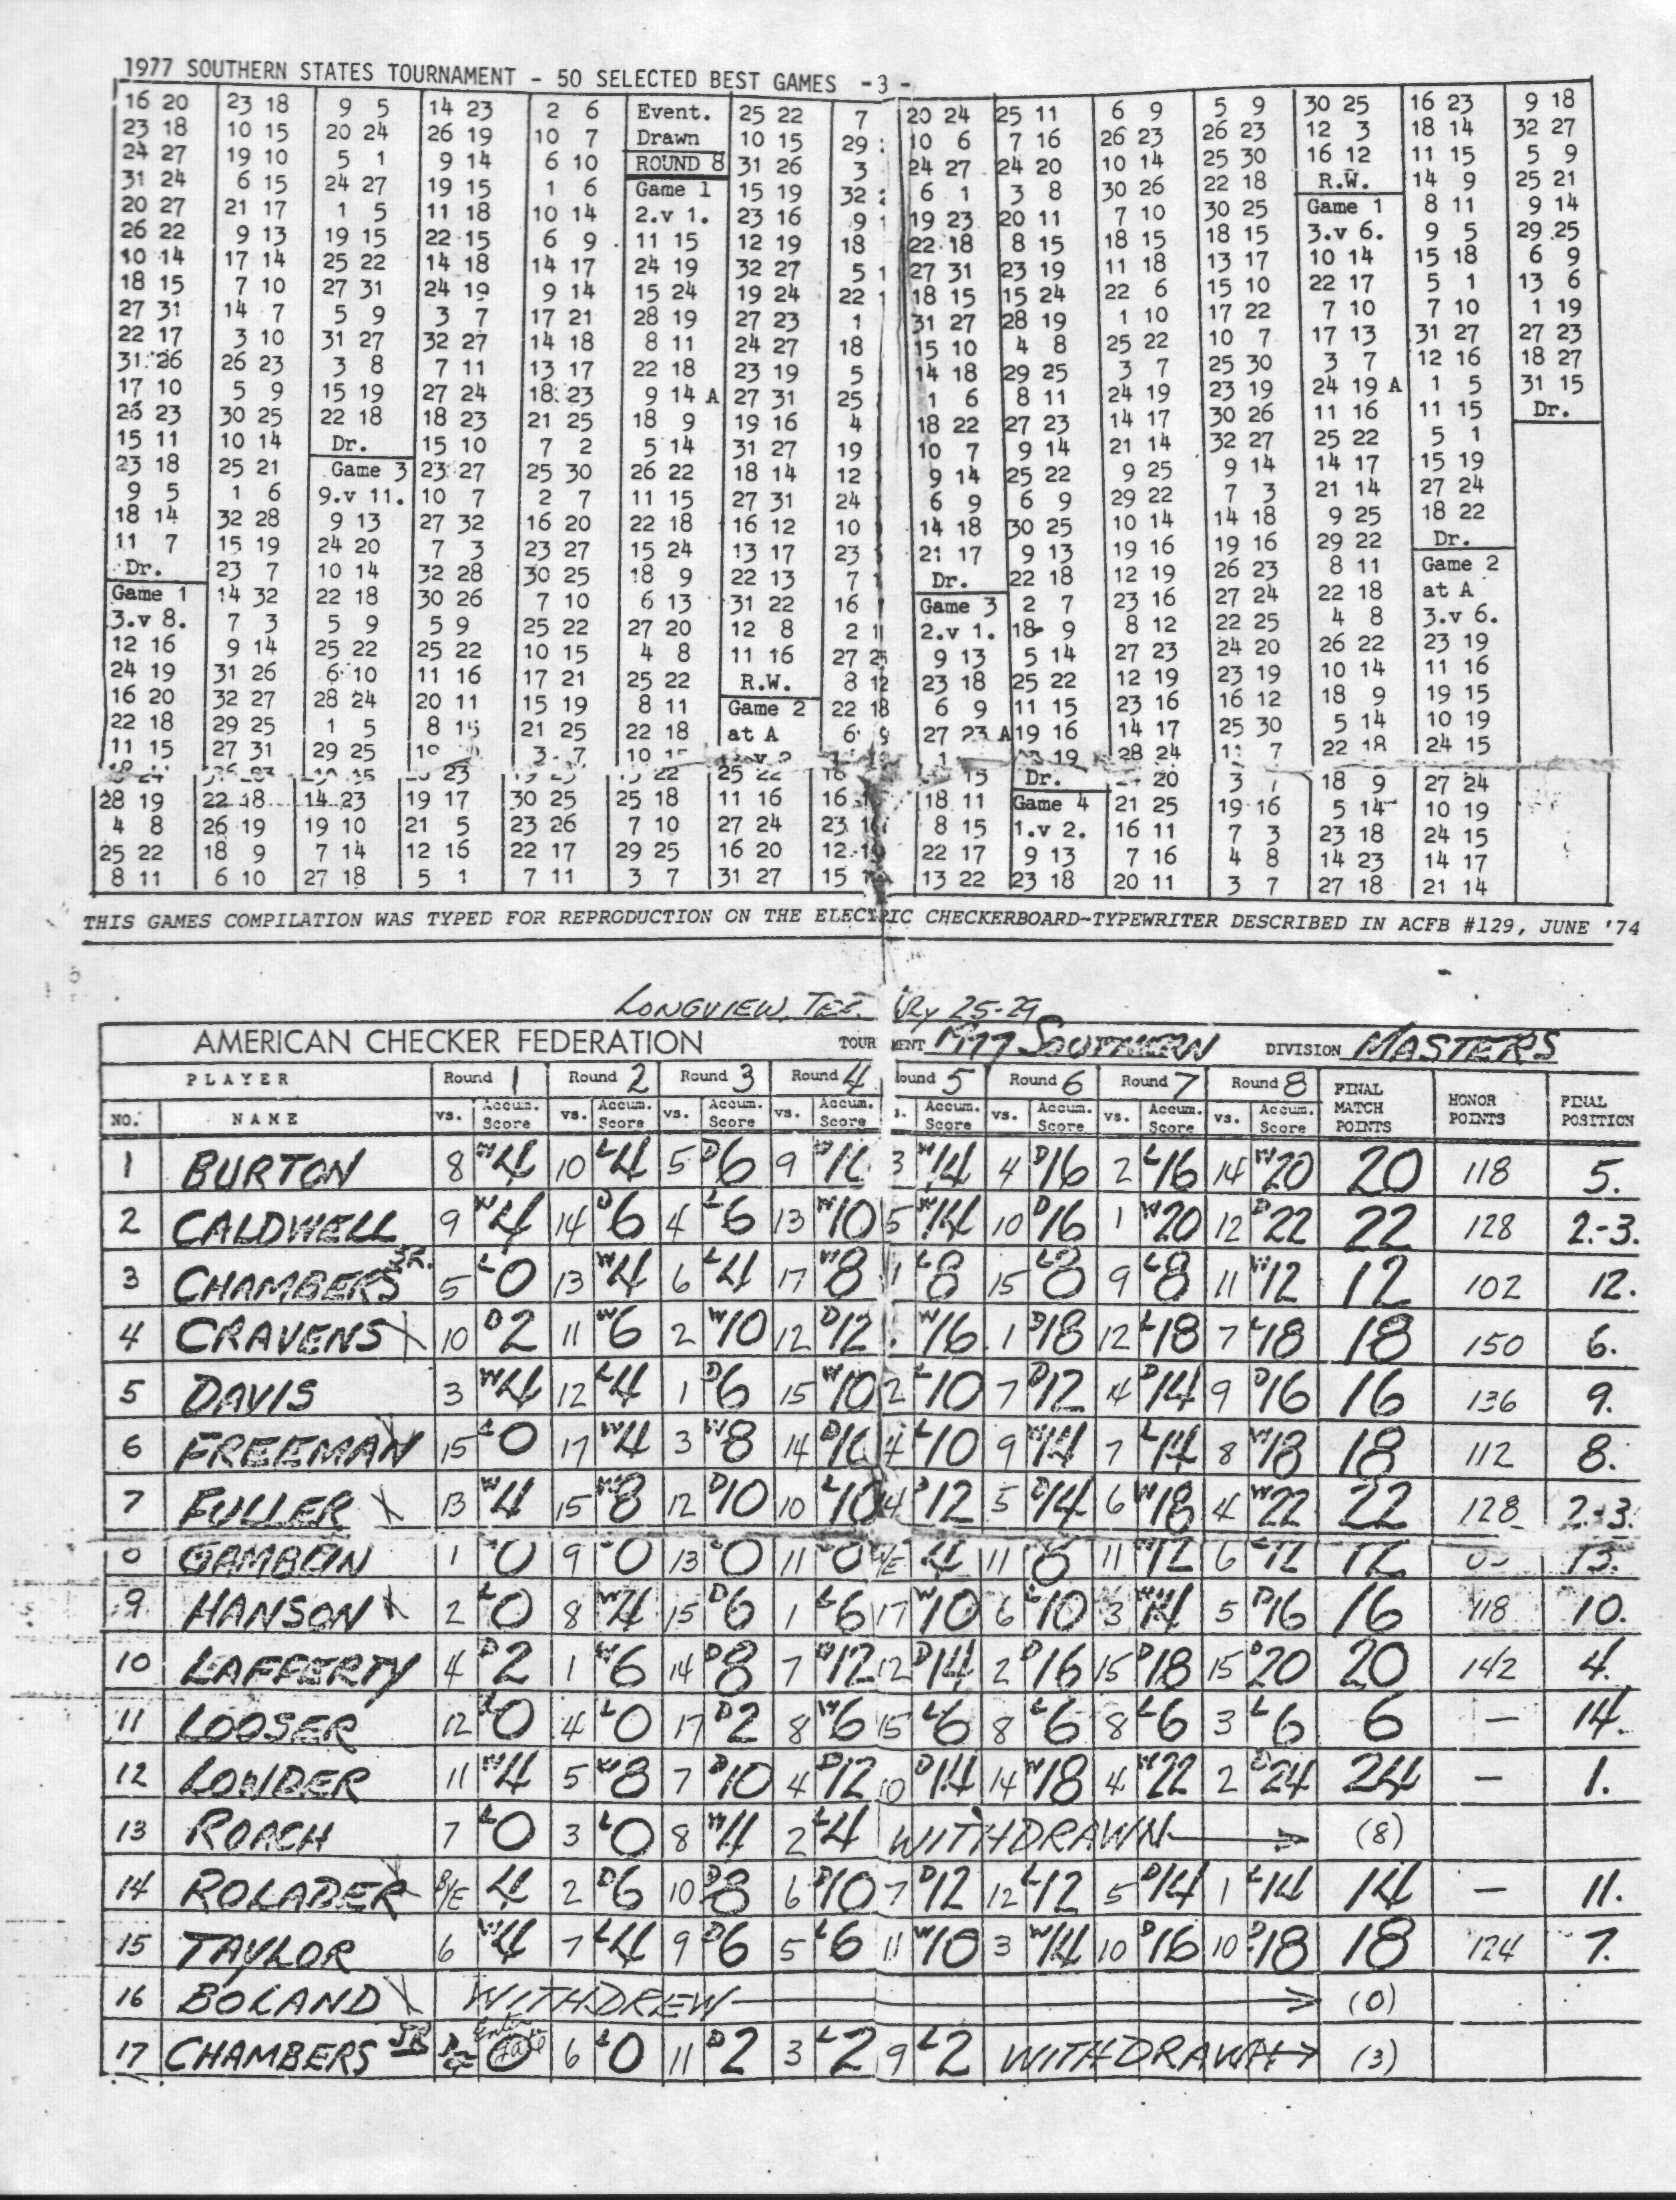 1977 SOUTHERN STATES TOURNAMENT - 50 SELECTED BEST GAMES -3-
16 20 23 18 9 5 14 23 2 6 Event. 25 22 7 20 24 25 11 6 9 5 9 30 25 16 23 9 18
23 18 10 15 20 24 26 19 10 7 Drawn 10 15 29 10 6 7 16 26 23 26 23 12 3 18 14 32 27
24 27 19 10 5 1 9 14 6 10 ROUND 8 31 26 3 24 27 24 20 10 14 25 30 16 12 11 15 5 9
31 24 6 15 24 27 19 15 1 6 Game 1 15 19 32 6 1 3 8 30 26 22 18 R.W. 14 9 25 21
20 27 21 17 1 5 11 18 10 14 2.v 1. 23 16 9 19 23 20 11 7 10 30 25 Game 1 8 11 9 14
26 22 9 13 19 15 22 15 6 9 11 15 12 19 18 22 18 8 15 18 15 18 15 3.v 6. 9 5 29 25
10 14 17 14 25 22 14 18 14 17 24 19 32 27 5 27 31 23 19 11 18 13 17 10 14 15 18 6 9
18 15 7 10 27 31 24 19 9 14 15 24 19 24 22 18 15 15 24 22 6 15 10 22 17 5 1 13 6
27 31 14 7 5 9 3 7 17 21 28 19 27 23 1 31 27 28 19 1 10 17 22 7 10 7 10 1 19
22 17 3 10 31 27 32 27 14 18 8 11 24 27 18 15 10 4 8 25 22 10 7 17 13 31 27 27 23
31 26 26 23 3 8 7 11 13 17 22 18 23 19 5 14 18 29 25 3 7 25 30 3 7 12 16 18 27
17 10 5 9 15 19 27 24 18 23 9 14 A 27 31 25 1 6 8 11 24 19 23 19 24 19 A 1 5 31 15
26 23 30 25 22 18 18 23 21 25 18 9 19 16 4 18 22 27 23 14 17 30 26 11 16 11 15 Dr.
15 11 10 14 Dr. 15 10 7 2 5 14 31 27 19 10 7 9 14 21 14 32 27 25 22 5 1
23 18 25 21 Game 3 23 27 25 30 26 22 18 14 12 9 14 25 22 9 25 9 14 14 17 15 19
9 5 1 6 9.v 11. 10 7 2 7 11 15 27 31 24 6 9 6 9 29 22 7 3 21 14 27 24
18 14 32 28 9 13 27 32 16 20 22 18 16 12 10 14 18 30 25 10 14 14 18 9 25 18 22
11 7 15 19 24 20 7 3 23 27 15 24 13 17 23 21 17 9 13 19 16 19 16 29 22 Dr.
Dr. 23 7 10 14 32 28 30 25 18 9 22 13 7 Dr. 22 18 12 19 26 23 8 11 Game 2
Game 1 14 32 22 18 30 26 7 10 6 13 31 22 16 Game 3 2 7 23 16 27 24 22 18 at A
3.v 8. 7 3 5 9 5 9 25 22 27 20 12 8 2 2.v 1. 18 9 8 12 22 25 4 8 3.v 6.
12 16 9 14 25 22 25 22 10 15 4 8 11 16 27 9 13 5 14 27 23 24 20 26 22 23 19
24 19 31 26 6 10 11 16 17 21 25 22 R.W. 8 12 23 18 25 22 12 19 23 19 10 14 11 16
16 20 32 27 28 24 20 11 15 19 8 11 Game 2 22 18 6 9 11 15 23 16 16 12 18 9 19 15
22 18 29 25 1 5 8 15 21 25 22 18 at A 6 27 23 A 19 16 14 17 25 30 5 14 10 19
11 15 27 31 29 25 3 7 19 28 24 7 22 18 24 15
23 22 25 22 15 Dr. 20 3 18 9 27 24
28 19 22 18 14 23 19 17 30 25 25 18 11 16 16 18 11 Game 4 21 25 19 16 5 14 10 19
4 8 26 19 19 10 21 5 23 26 7 10 27 24 23 8 15 1.v 2. 16 11 7 3 23 18 24 15
25 22 18 9 7 14 12 16 22 17 29 25 16 20 12 22 17 9 13 7 16 4 8 14 23 14 17
8 11 6 10 27 18 5 1 7 11 3 7 31 27 15 13 22 23 18 20 11 3 7 27 18 21 14
THIS GAMES COMPILATION WAS TYPED FOR REPRODUCTION ON THE ELECTRIC CHECKERBOARD-TYPEWRITER DESCRIBED IN ACFB #129, JUNE '74
LONGVIEW, 25-29
AMERICAN CHECKER FEDERATION 1977 SOUTHERN DIVISION MASTERS
PLAYER Round 1 Round 2 Round 3 Round 4 Round 5 Round 6 Round 7 Round 8 FINAL MATCH POINTS HONOR POINTS FINAL POSITION
NO. NAME vs. Accum. Score vs. Accum. Score vs. Accum. Score vs. Accum. Score Accum. Score vs. Accum. Score vs. Accum. Score vs. Accum. Score
1 BURTON 8 W4 10 L4 5 D6 9 W10 3 W14 4 D16 2 L16 14 W20 20 118 5.
2 CALDWELL 9 W4 14 D6 4 L6 13 W10 5 W14 10 D16 1 W20 12 D22 22 128 2.-3.
3 CHAMBERS JR. 5 L0 13 W4 6 L4 17 W8 1 L8 15 L8 9 L8 11 W12 12 102 12.
4 CRAVENS X 10 D2 11 W6 2 W10 12 D12 W16 1 D18 12 L18 7 L18 18 150 6.
5 DAVIS 3 W4 12 L4 1 D6 15 W10 2 L10 7 D12 14 D14 9 D16 16 136 9.
6 FREEMAN X 15 L0 17 W4 3 W8 14 D10 4 L10 9 W14 7 L14 8 W18 18 112 8.
7 FULLER X 13 W4 15 W8 12 D10 10 L10 14 D12 5 D14 6 W18 4 W22 22 128 2.-3.
GAMBLIN 1 0 9 0 13 L0 11 L0 4 11 8 11 W12 6 L12 12 13.
9 HANSON X 2 L0 8 W4 15 D6 1 L6 17 W10 6 L10 3 W14 5 D16 16 118 10.
10 LAFFERTY 4 D2 1 W6 14 D8 7 W12 12 D14 2 D16 15 D18 15 D20 20 142 4.
11 LOOSER 12 L0 4 L0 17 D2 8 W6 15 L6 8 L6 8 L6 3 L6 6 — 14.
12 LOWDER 11 W4 5 W8 7 D10 4 D12 10 D14 14 W18 4 W22 2 D24 24 — 1.
13 ROACH 7 L0 3 L0 8 W4 2 L4 WITHDRAWN (8)
14 ROLADER X BYE 4 2 D6 10 D8 6 D10 7 D12 12 L12 5 D14 1 L14 14 — 11.
15 TAYLOR 6 W4 7 L4 9 D6 5 L6 11 W10 3 W14 10 D16 10 D18 18 124 7.
16 BOLAND X WITHDREW (0)
17 CHAMBERS JR 0 6 L0 11 D2 3 L2 9 L2 WITHDRAWN (3)